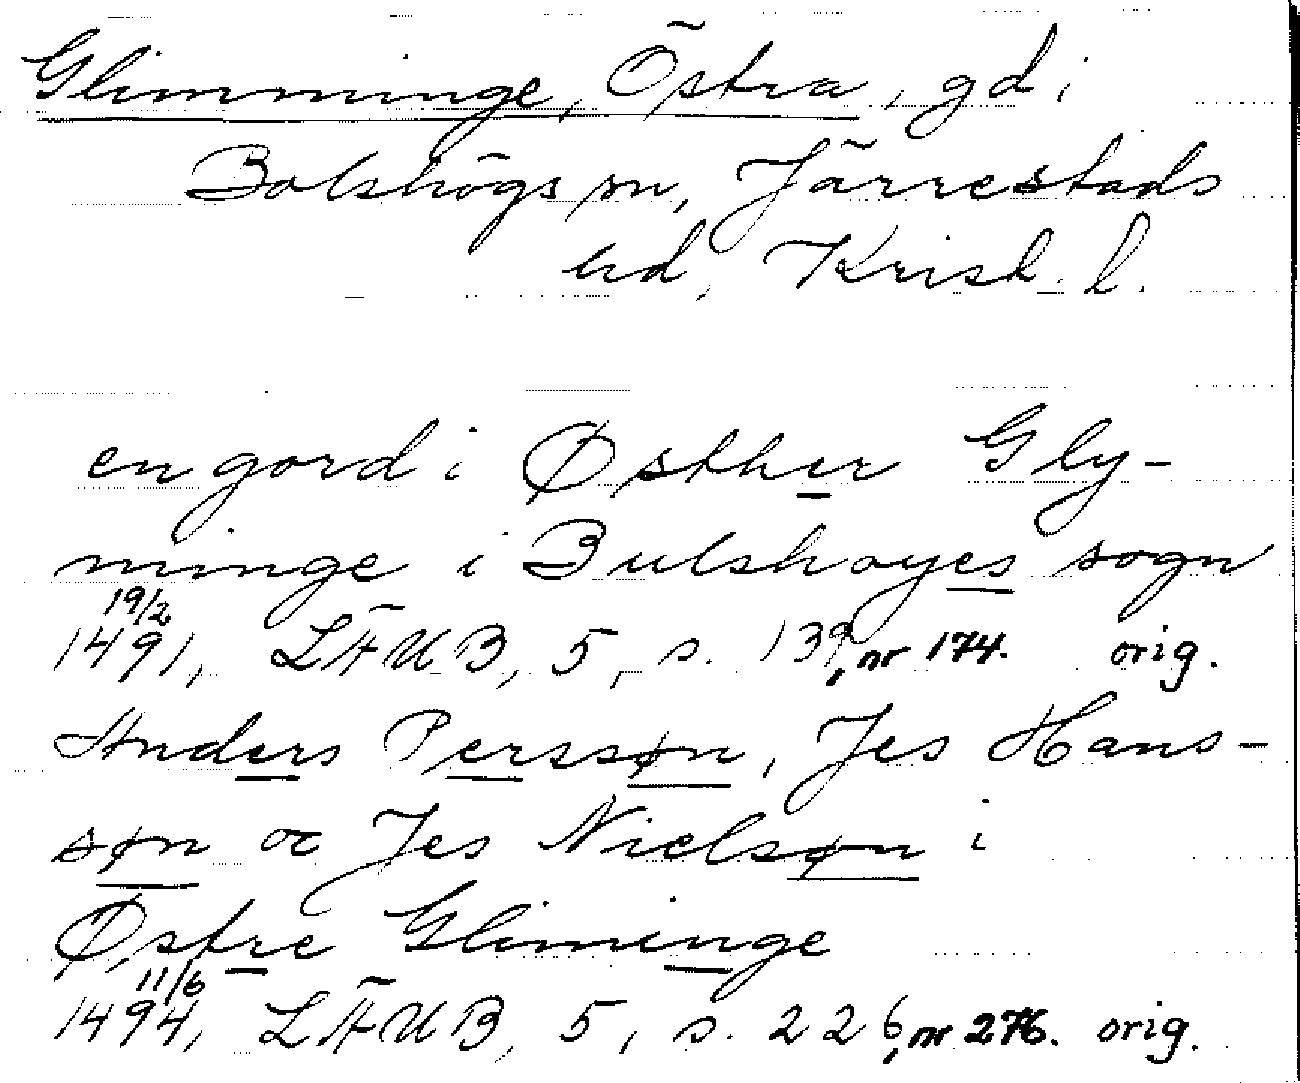 Glimminge, Östra, gd i
Bolshögs sn, Järrestads
hd, Krist. l.
en gord i Østher Gly-
minge i Bulshoyes sogn
19/2
1491, LÄUB, 5, s. 139, nr 174. orig.
Anders Perssøn, Jes Hans-
søn oc Jes Nielssøn i
Østre Gliminge
11/6
1494, LÄUB, 5, s. 226, nr 276. orig.